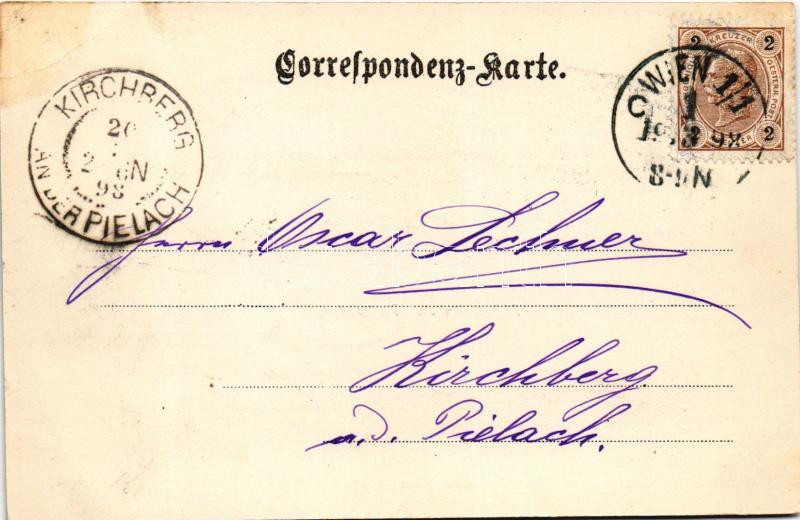 Correspondenz-Karte.
KIRCHBERG
AN DER PIELACH
98
WIEN 1/1
1
3 98
8-9N
2 KREUZER 2
2 2
Herrn Oscar Lechner
Kirchberg
a.d. Pielach.